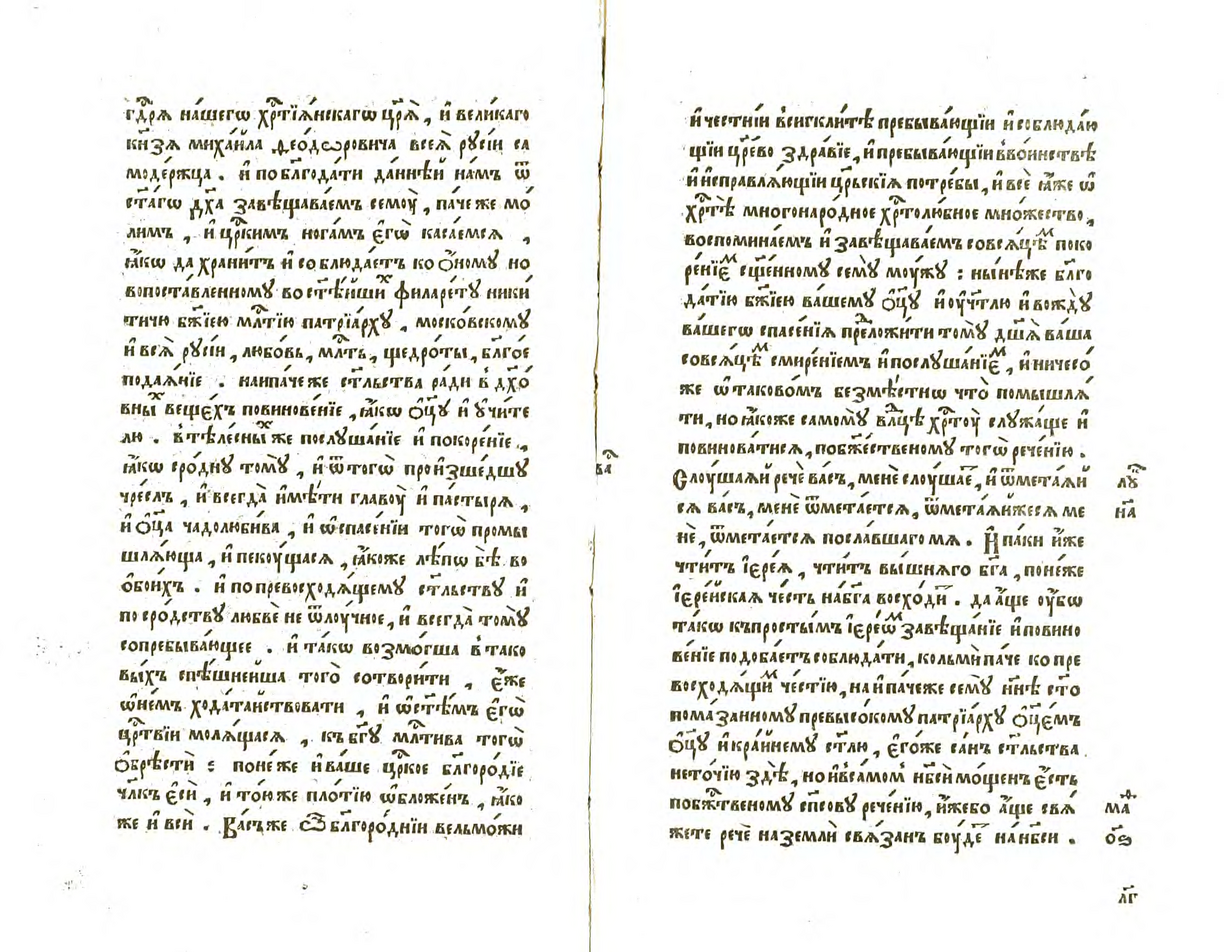 гдⷭ҇рѧ нашегѡ хрⷭ҇тїѧнскагѡ цр҃ѧ, и великаго
кн҃зѧ михаила ѳеодѡровича всеѧ рꙋсїи са
модержца. и по блг҃одати даннѣй намъ ѿ
ст҃агѡ дх҃а завѣщаваемъ семоу, паче же мо
лимъ, и црⷭ҇кимъ ногамъ єгѡ касаемсѧ,
ꙗкѡ да хранитъ и соблюдаетъ ко ѻному но
вопоставленномꙋ во ст҃ѣйшиⷯ филаретꙋ ники
тичю бж҃їею млⷭ҇тїю патрїархꙋ, московскомꙋ
и всеѧ рꙋсїи, любовь, млⷭ҇ть, щедроты, благое
подаѧнїе. наипаче же ст҃льства ради в дх҃о
вныⷯ вещехъ повиновенїе, ꙗкѡ ѻц҃ꙋ и ꙋчите
лю. в тѣлесныⷯ же послꙋшанїе и покоренїе,
ꙗкѡ сроднꙋ томꙋ, и ѿ тогѡ произшедшꙋ
чреслъ, и всегда имѣти главоу и пастырѧ,
и ѻц҃а чадолюбива, и ѡ спасенїи тогѡ промы
шлѧюща, и пекоущасѧ, ꙗкоже лѣпѡ бѣ во
ѻбоихъ. и по превосходѧщемꙋ ст҃льствꙋ и
по сродствꙋ любве не ѿлоучное, и всегда томꙋ
сопребывающее. и такѡ возмогша в тако
выхъ спѣшнейша того сотворити, єже
ѡ немъ ходатайствовати, и ѡ ст҃ѣмъ єгѡ
црⷭ҇твїи молѧщасѧ, къ бг҃ꙋ млⷭ҇тива тогѡ
ѻбрѣсти: понеже и ваше црⷭ҇кое блг҃ородїе
чл҃къ єси, и тою же плотїю ѡбложенъ, ꙗко
же и вси. Васъ же ѽ благороднїи вельможи
и честнїи в сигклитѣ пребывающїи и соблюдаю
щїи цр҃ево здравїе, и пребывающїи в воинствѣ
и исправлѧющїи црⷭ҇ьскїѧ потребы, и всѐ ꙗже ѡ
хрⷭ҇тѣ многонародное хрⷭ҇толюбное множество,
воспоминаемъ и завѣщаваемъ со всѧцѣⷨ поко
ренїеⷨ сщ҃енномꙋ семꙋ моужꙋ: нынѣ же блг҃о
датїю бж҃їею вашемꙋ ѻц҃ꙋ и оучт҃лю и вождꙋ
вашегѡ спасенїѧ предⷧ҇ожити томꙋ дш҃ѧ ваша
со всѧцѣⷨ смиренїемъ и послꙋшанїеⷨ, и ничесо
же ѡ таковомъ безмѣстнѡ что помышлѧ
ти, но ꙗкоже самомꙋ влⷣцѣ хрⷭ҇тоу слꙋжаще и
повиноватисѧ, по бжественомꙋ тогѡ реченїю.
ва
Слоушаѧй рече васъ, мене слоушае҇, и ѿметаѧй
лꙋⷦ҇
сѧ васъ, мене ѿметаетсѧ, ѿметаѧйжесѧ ме
н҃а
не, ѿметаетсѧ пославшаго мѧ. И паки иже
чтитъ їереѧ, чтитъ вышнѧго бг҃а, понеже
їерейская честь на бг҃а восходи҇. да аще оубѡ
такѡ къ простымъ їереѡⷨ завѣщанїе и повино
венїе подобаетъ соблюдати, кольми паче ко пре
восходѧщиⷨ честїю, наипаче же семꙋ нн҃ѣ ст҃о
помазанномꙋ превысокомꙋ патрїархꙋ ѻц҃емъ
ѻц҃ꙋ и крайнемꙋ ст҃лю, єгоже санъ ст҃льства
не точїю здѣ, но и в самоⷨ нб҃си мощенъ єсть
по бжⷭ҇твеномꙋ сп҃совꙋ реченїю, иже бо аще свѧ
маⷴ
жете рече на земли свѧзанъ боуде҇ на нб҃си.
ѻ҃ѕ
л҃г